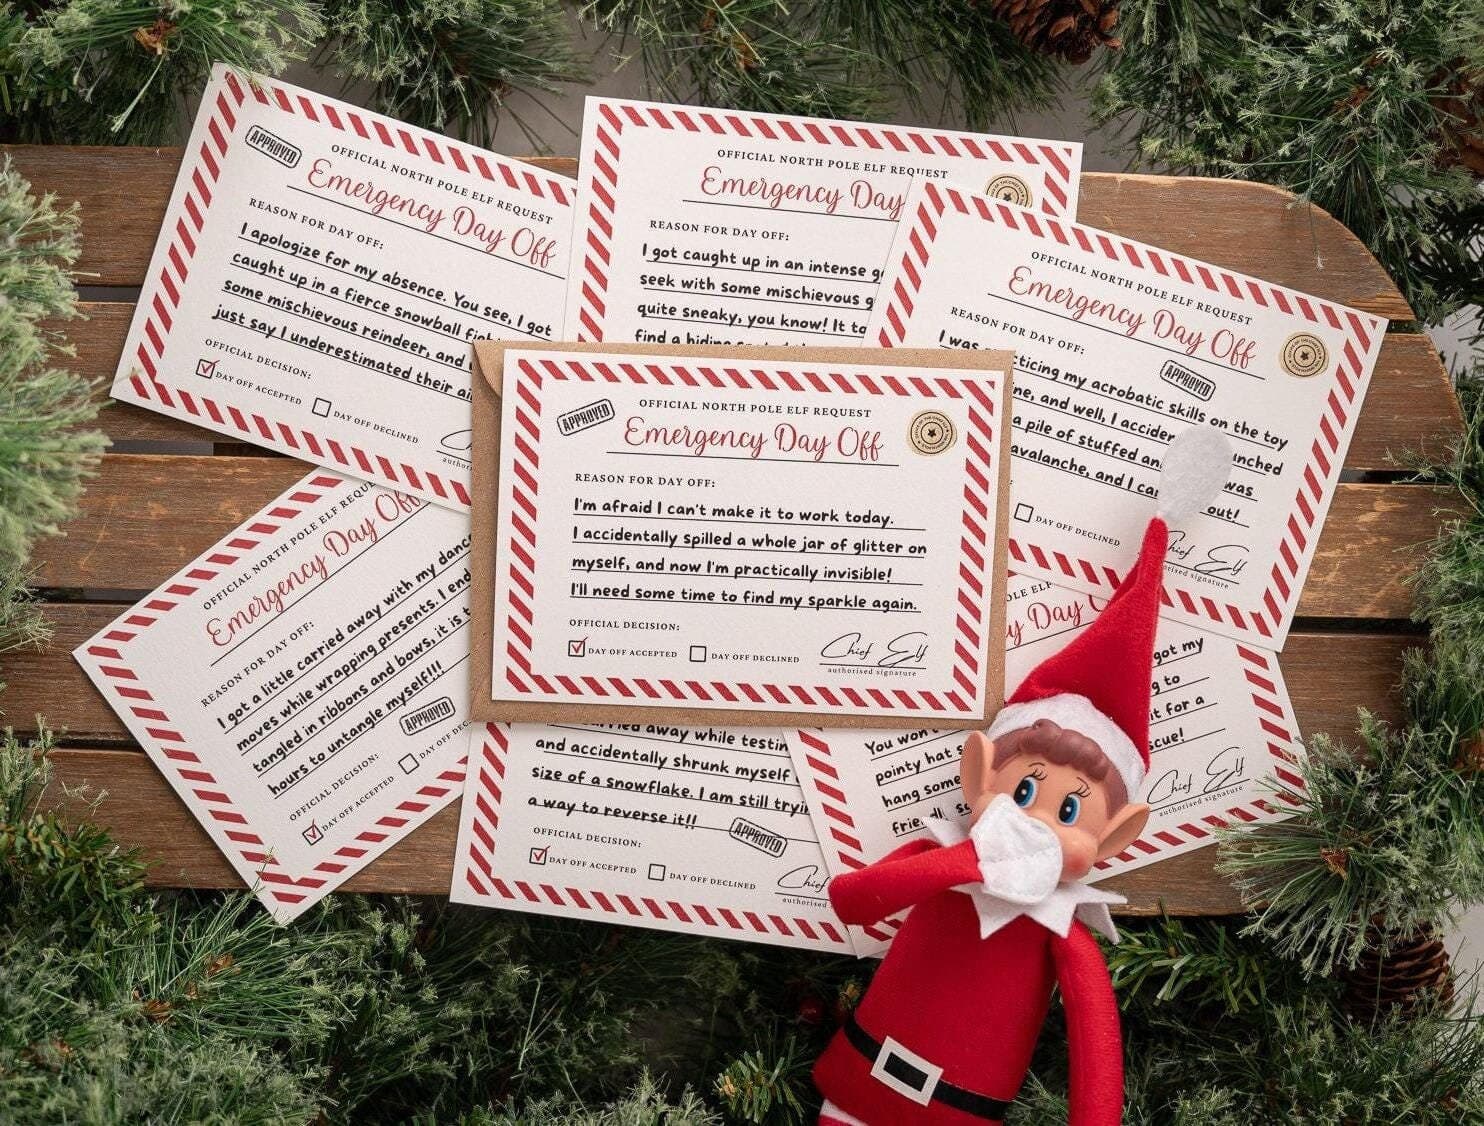 APPROVED
OFFICIAL NORTH POLE ELF REQUEST
Emergency Day Off
REASON FOR DAY OFF:
I apologize for my absence. You see, I got
caught up in a fierce snowball
some mischievous reindeer, and
just say I underestimated their
OFFICIAL DECISION:
DAY OFF ACCEPTED
DAY OFF DECLINED
OFFICIAL NORTH POLE ELF REQUEST
Emergency Day
REASON FOR DAY OFF:
I got caught up in an intense
seek with some mischievous
quite sneaky, you know! It
find a
OFFICIAL NORTH POLE ELF REQUEST
Emergency Day Off
REASON FOR DAY OFF:
APPROVED
I was
my acrobatic skills on the toy
and well, I
a pile of stuffed
avalanche, and I
was
out!
DAY OFF DECLINED
Chief Elf
authorised signature
APPROVED
OFFICIAL NORTH POLE ELF REQUEST
Emergency Day Off
REASON FOR DAY OFF:
I'm afraid I can't make it to work today.
I accidentally spilled a whole jar of glitter on
myself, and now I'm practically invisible!
I'll need some time to find my sparkle again.
OFFICIAL DECISION:
DAY OFF ACCEPTED
DAY OFF DECLINED
Chief Elf
authorised signature
OFFICIAL NORTH POLE ELF
Emergency Day Off
REASON FOR DAY OFF:
I got a little carried away with my
moves while wrapping presents. I
tangled in ribbons and bows, it is
hours to untangle myself!!!
APPROVED
OFFICIAL DECISION:
DAY OFF ACCEPTED
DAY OFF
away while
and accidentally shrunk myself
size of a snowflake. I am still
a way to reverse it!!
APPROVED
OFFICIAL DECISION:
DAY OFF ACCEPTED
DAY OFF DECLINED
Chief
ELF
Day
got my
to
You
it for a
pointy hat
hang
Chief Elf
authorised signature